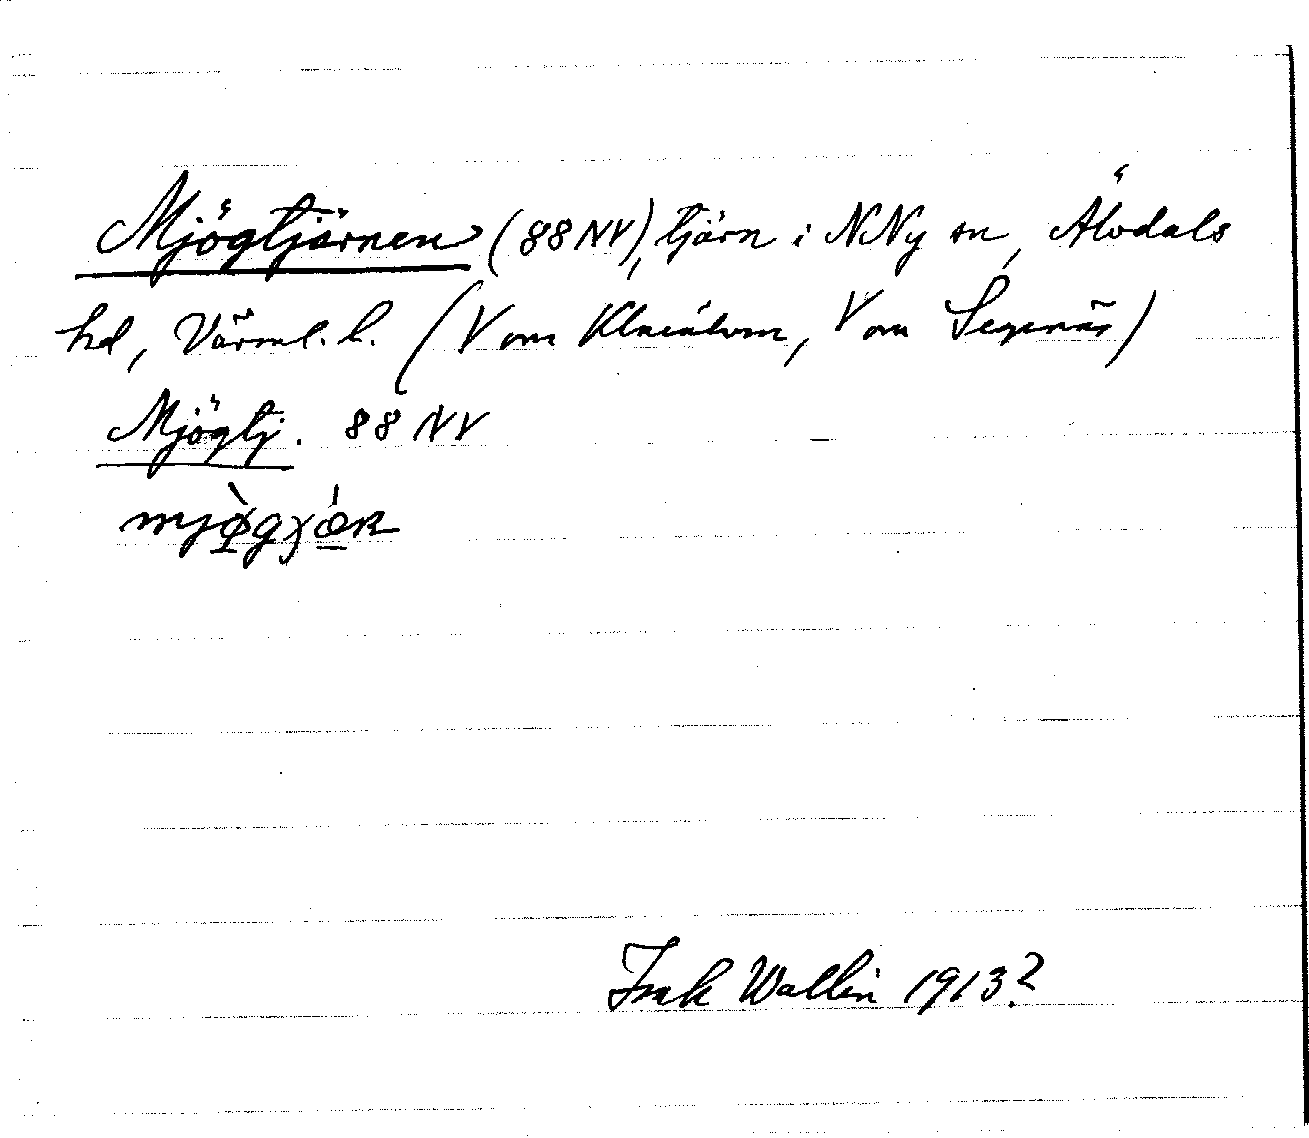 Mjögtjärnen (88 NV), tjärn i NNy sn, Älvdals
hd, Värml. l. (V om Klarälven, V om Segenäs)
Mjögtj. 88 NV
Isak Wallin 1913?